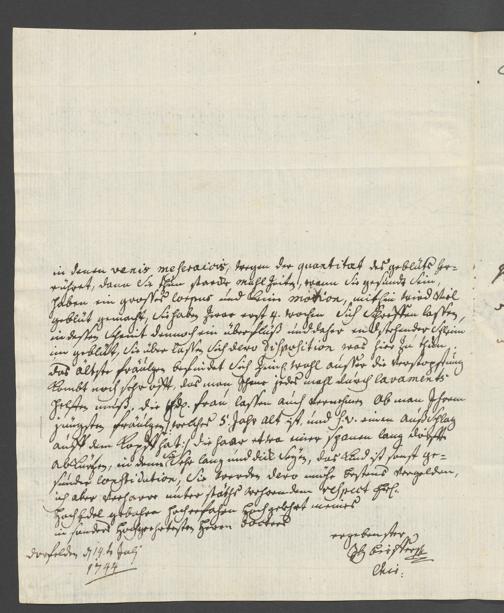 in denen venis meseraicis, wegen der quantitat des geblüts he-
rühret, dann Sie thun starcke mahlzeiten, wann Sie gesundt sein,
haben ein grosses corpus und kein motion, mithin wird viel
geblüt gemacht, Sie haben zwar erst 4. wochen sich schrepfen lassen,
in dessen scheint dennoch ein überfluß und daher entstehender
im geblüt, Sie über lassen sich dero disposition was hier zu thun,
das älteste fräulein befindet sich zimlich wohl ausser die verstopfung
kombt noch sehr oft, das man Ihme jedes mahl durch lavaments
helfen muß, die frau lassen auch vernehmen Ob man Ihrem
jüngsten fräulein, welches 5. Jahr alt ist, und s.v. einen ausschlag
auff dem Kopff hat, die haar etwa einer spannen lang dörffte
abkürtzen, in dem Sehr lang und dick seyen, das Kind ist sonst ge-
sunder constitution, Sie werden dero mühe bestens vergelden,
ich aber verharre unter stäths wehrendem respect
Hoch Edel gebohrn Hocherfahrn Hochgelehrt meines
in sonders Hochgeehrtesten Herrn doctors
ergebenster
Chir:
den 19. July
1744